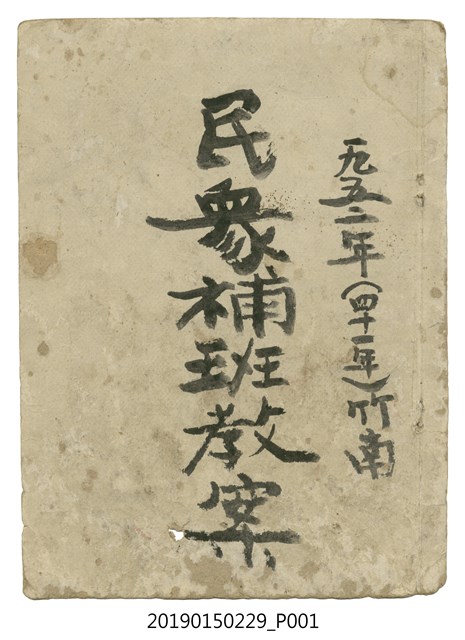 一九五二年(四十一年)竹南
民衆補班教案
20190150229_P001